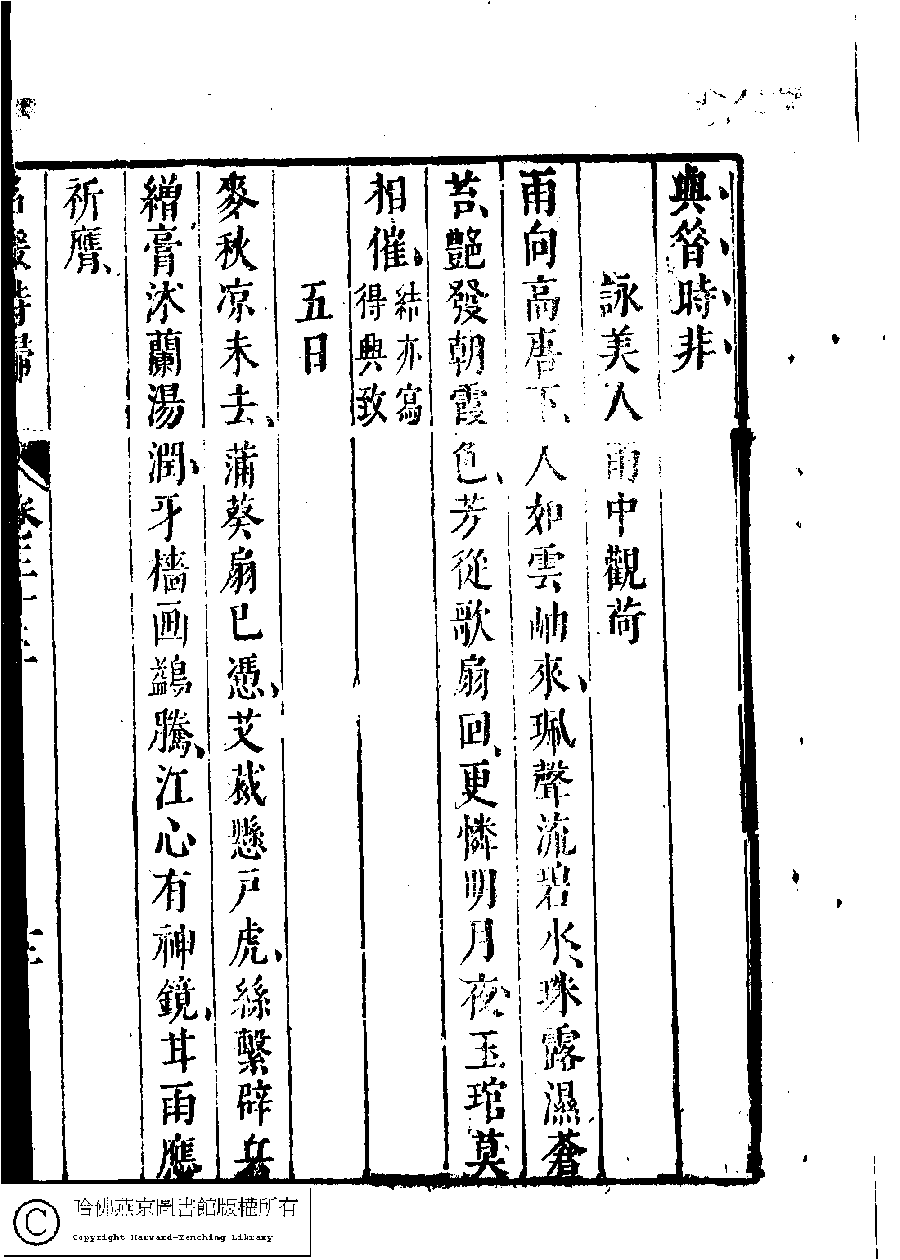 與昝時非
詠美人雨中觀荷
雨向高唐下、人如雲岫來、珮聲流碧水、珠露濕蒼
苔、艷發朝霞色、芳從歌扇回、更憐明月夜、玉琯莫
相催、結亦寫得興致
五日
麥秋凉未去、蒲葵扇已憑、艾裁懸戸虎、絲繫辟兵
繒、膏沐蘭湯潤、牙檣画鷁騰、江心有神鏡、甘雨應
祈膺、
名媛詩歸
卷三十三
三
哈佛燕京圖書館版權所有
Copyright Harvard-Yenching Library